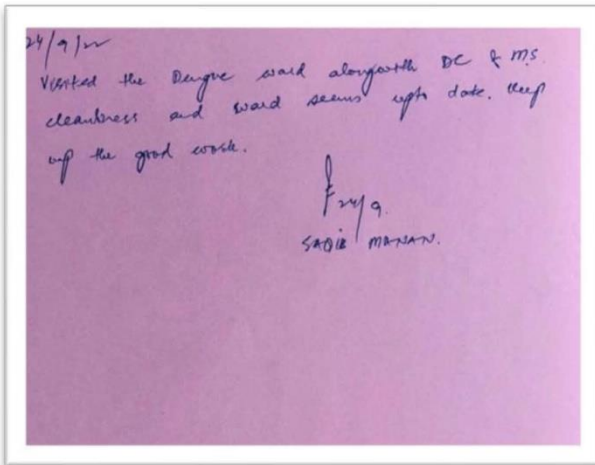 24/9/22
Visited the Dengue ward alongwith DC & MS.
cleanliness and ward seems upto date. Keep
up the good work.
24/9.
SAQIB MANAN.